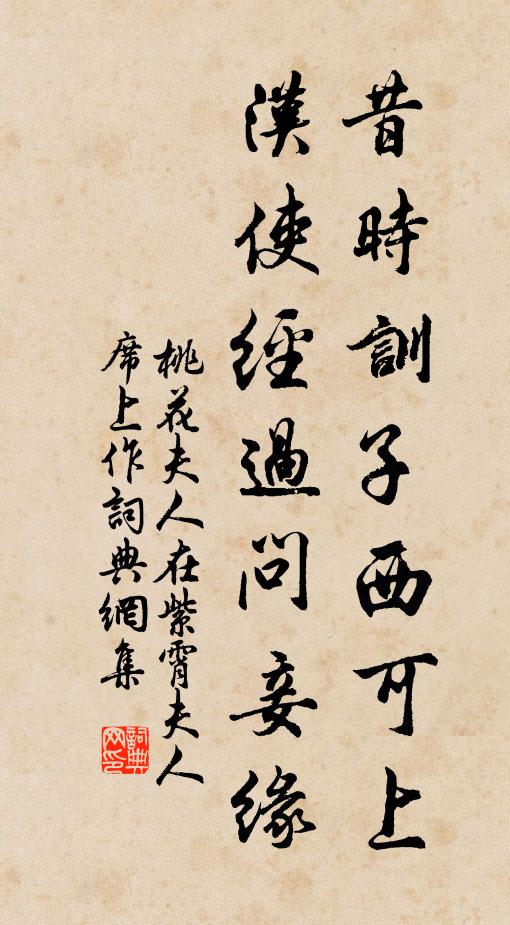 昔時訓子西河上
漢使經過問妾緣
桃花夫人在紫霄夫人
席上作詞典網集
詞典网印